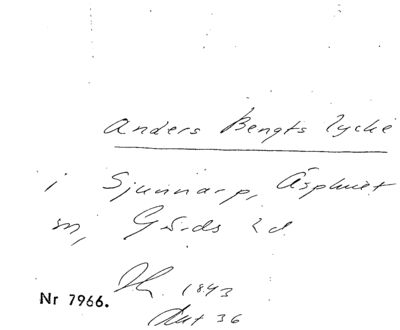 Anders Bengts lycke
i Sjunnarp, Äsphult
sn, Gärds hd
1843
36
Nr 7966.